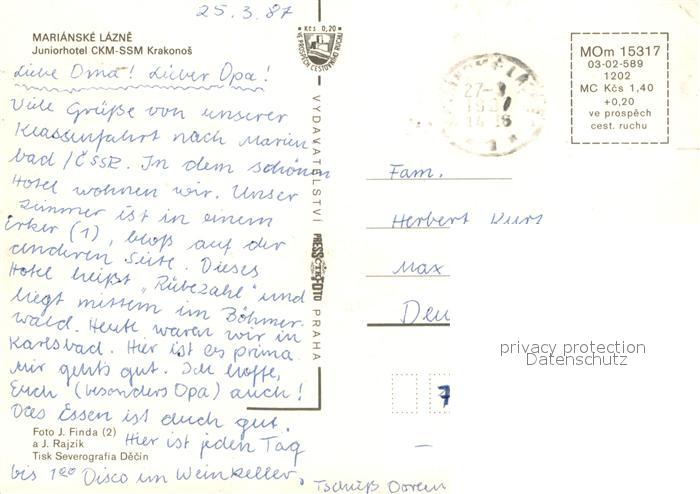 25.3.87
MARIÁNSKÉ LÁZNĚ
Juniorhotel CKM-SSM Krakonoš
Liebe Oma! Lieber Opa!
Viele Grüße von unserer
Klassenfahrt nach Marien
bad/ČSSR. In dem schönen
Hotel wohnen wir. Unser
Zimmer ist in einem
Erker (1), bloß auf der
anderen Seite. Dieses
Hotel heißt „Rübezahl" und
liegt mitten im Böhmer-
wald. Heute waren wir in
Karlsbad. Hier ist es prima.
Mir gehts gut. Ich hoffe,
Euch (besonders Opa) auch!
Das Essen ist auch gut.
Hier ist jeden Tag
bis 1⁰⁰ Disco im Weinkeller.
Tschüß Doreen
Foto J. Finda (2)
a J. Rajzík
Tisk Severografia Děčín
Kčs 0,20
VE PROSPĚCH CESTOVNÍHO RUCHU
VYDAVATELSTVÍ PRESSFOTO PRAHA
ČTK
27
MOm 15317
03-02-589
1202
MC Kčs 1,40
+0,20
ve prospěch
cest. ruchu
Fam.
Herbert Kurt
Max
Deu
7
privacy protection
Datenschutz